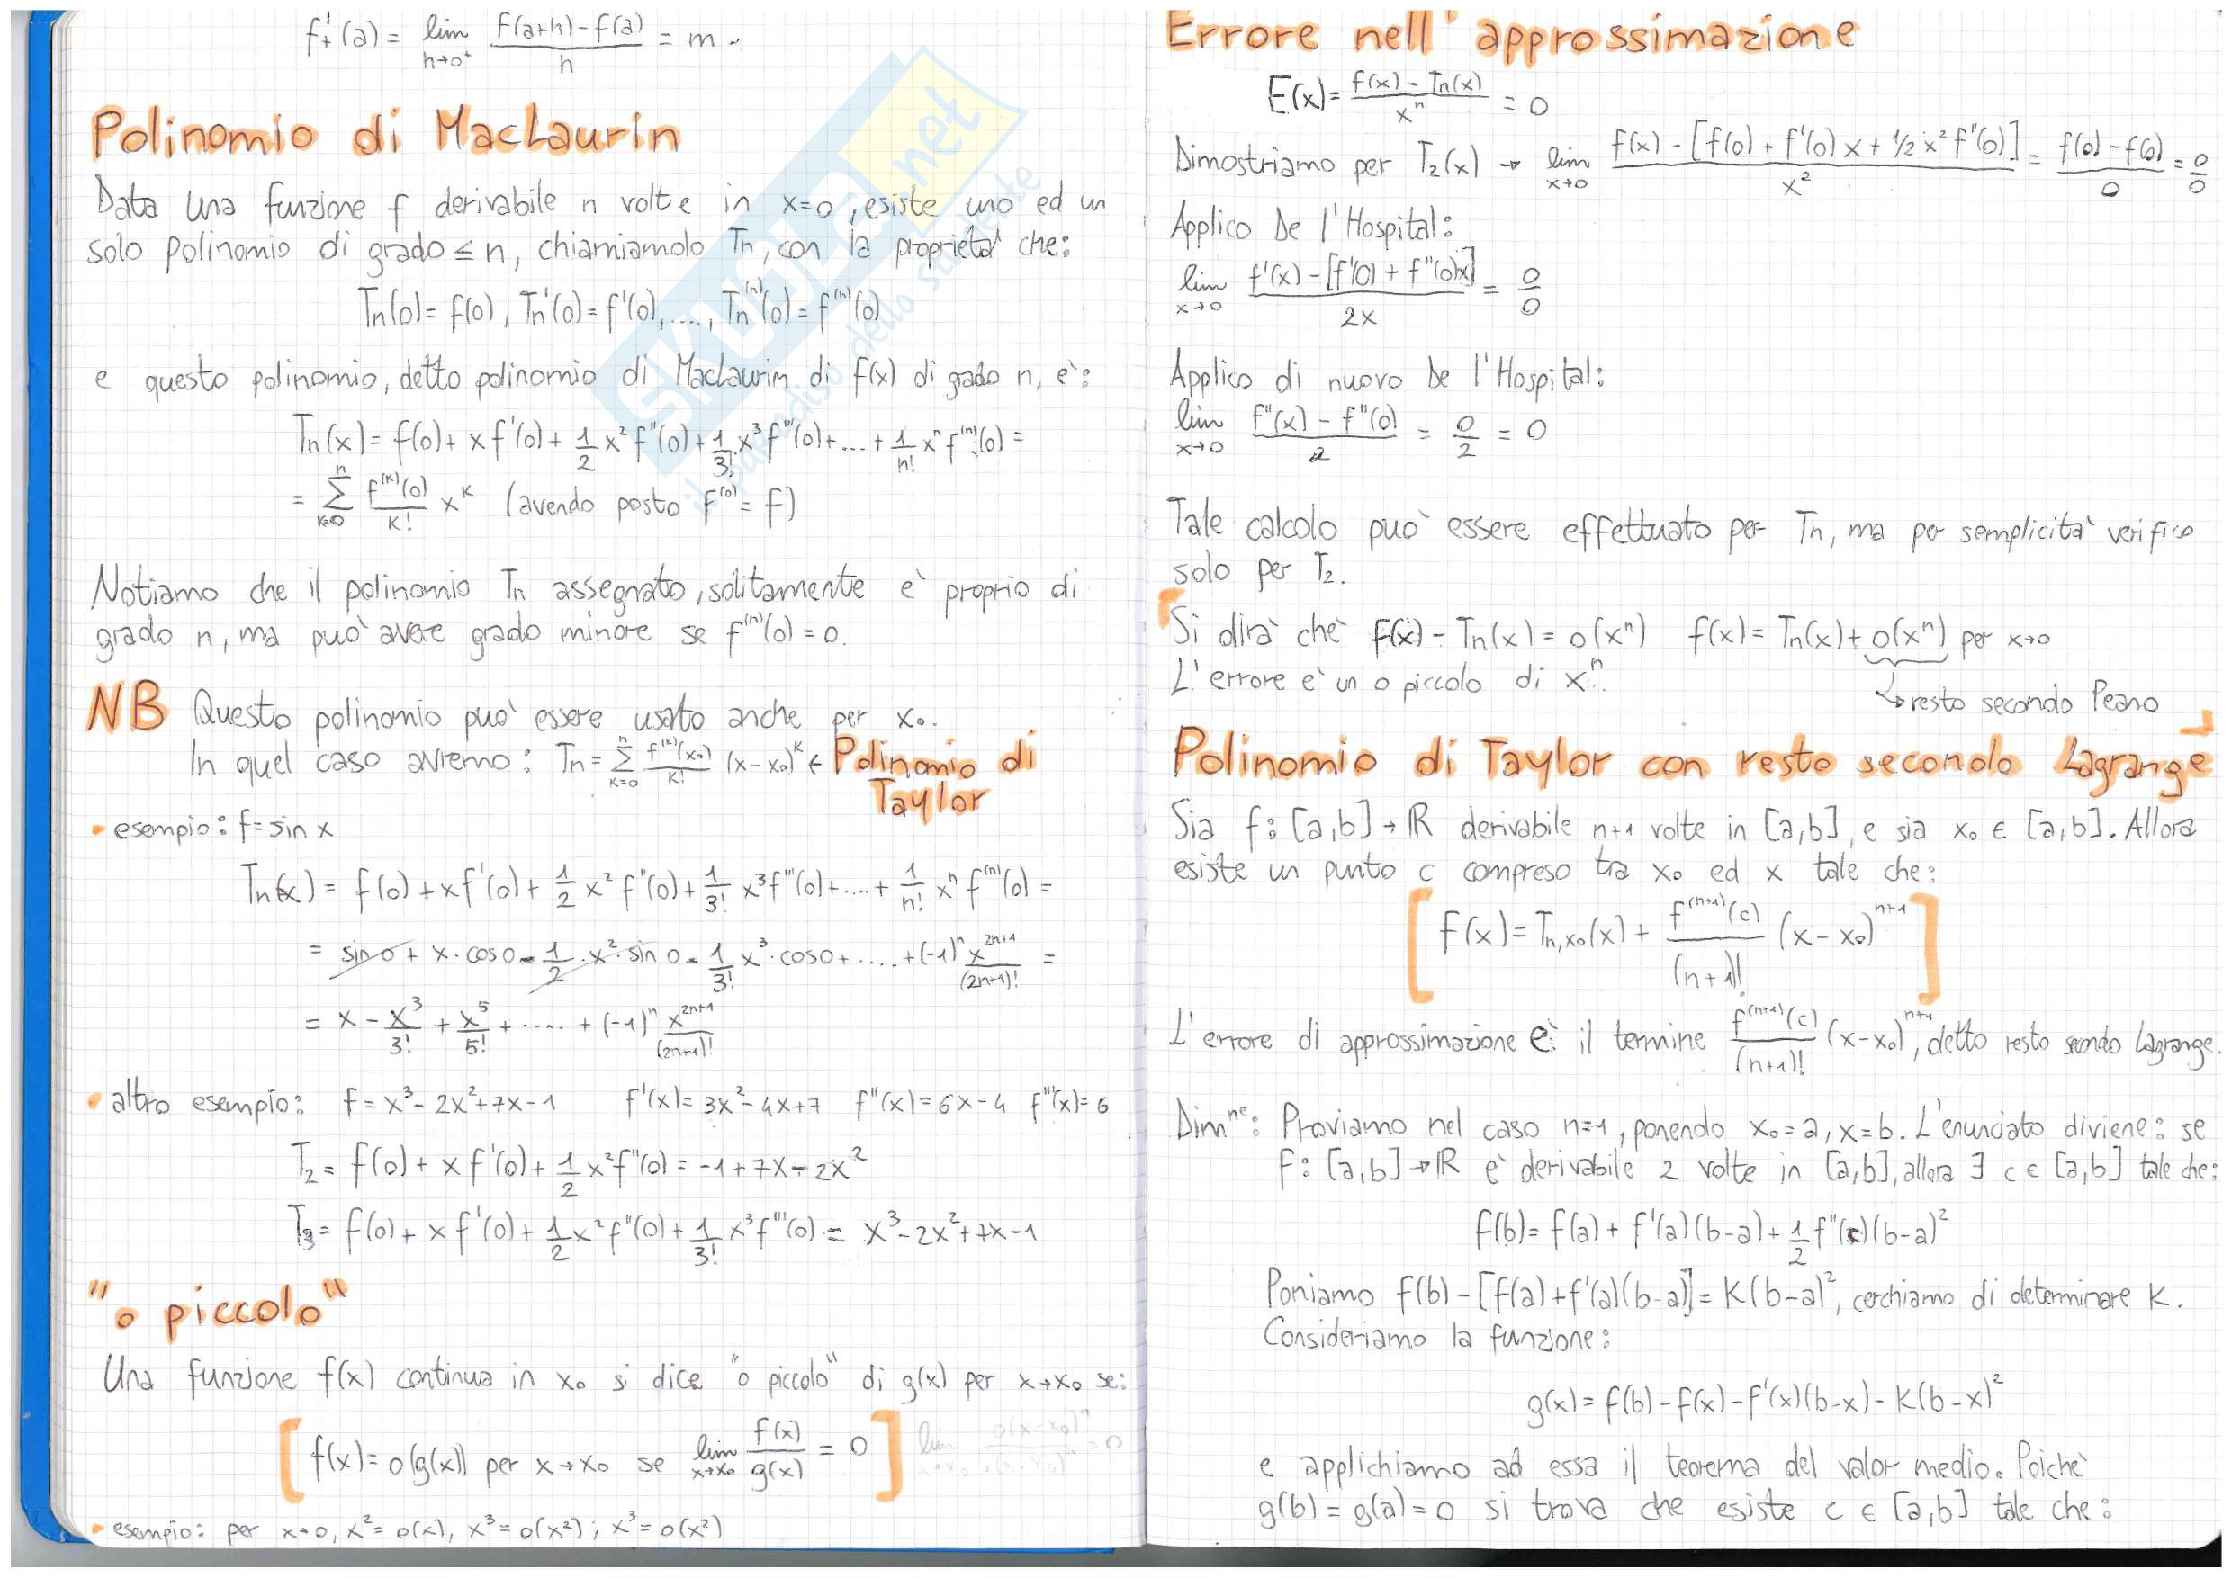 f'₊(a) = lim h→0⁺ (f(a+h) - f(a))/h = m.
Polinomio di MacLaurin
Data una funzione f derivabile n volte in x=0, esiste uno ed un
solo polinomio di grado ≤ n, chiamiamolo Tn, con la proprietà che:
Tn(0) = f(0), Tn'(0) = f'(0), ...., Tn⁽ⁿ⁾(0) = f⁽ⁿ⁾(0)
e questo polinomio, detto polinomio di MacLaurin di f(x) di grado n, è:
Tn(x) = f(0) + x f'(0) + 1/2 x² f''(0) + 1/3! x³ f'''(0) + .... + 1/n! xⁿ f⁽ⁿ⁾(0) =
= Σ k=0 n f⁽ᵏ⁾(0)/k! xᵏ (avendo posto f⁽⁰⁾ = f)
Notiamo che il polinomio Tn assegnato, solitamente è proprio di
grado n, ma può avere grado minore se f⁽ⁿ⁾(0) = 0.
NB Questo polinomio può essere usato anche per x₀.
In quel caso avremo: Tn = Σ k=0 n f⁽ᵏ⁾(x₀)/k! (x-x₀)ᵏ ← Polinomio di
Taylor
• esempio: f = sin x
Tn(x) = f(0) + x f'(0) + 1/2 x² f''(0) + 1/3! x³ f'''(0) + .... + 1/n! xⁿ f⁽ⁿ⁾(0) =
= sin 0 + x · cos 0 - 1/2 · x² · sin 0 - 1/3! x³ · cos 0 + .... + (-1)ⁿ x²ⁿ⁺¹/(2n+1)! =
= x - x³/3! + x⁵/5! + ..... + (-1)ⁿ x²ⁿ⁺¹/(2n+1)!
• altro esempio: f = x³ - 2x² + 7x - 1 f'(x) = 3x² - 4x + 7 f''(x) = 6x - 4 f'''(x) = 6
T₂ = f(0) + x f'(0) + 1/2 x² f''(0) = -1 + 7x - 2x²
T₃ = f(0) + x f'(0) + 1/2 x² f''(0) + 1/3! x³ f'''(0) = x³ - 2x² + 7x - 1
"o piccolo"
Una funzione f(x) continua in x₀ si dice "o piccolo" di g(x) per x→x₀ se:
[ f(x) = o(g(x)) per x→x₀ se lim x→x₀ f(x)/g(x) = 0 ]
• esempio: per x→0, x² = o(x), x³ = o(x²); x³ = o(x²)
Errore nell'approssimazione
E(x) = (f(x) - Tn(x))/xⁿ = 0
Dimostriamo per T₂(x) → lim x→0 (f(x) - [f(0) + f'(0) x + 1/2 x² f''(0)])/x² = (f(0) - f(0))/0 = 0/0
Applico De l'Hospital:
lim x→0 (f'(x) - [f'(0) + f''(0)x])/2x = 0/0
Applico di nuovo De l'Hospital:
lim x→0 (f''(x) - f''(0))/2 = 0/2 = 0
Tale calcolo può essere effettuato per Tn, ma per semplicità verifico
solo per T₂.
Si dirà che f(x) - Tn(x) = o(xⁿ) f(x) = Tn(x) + o(xⁿ) per x→0
L'errore è un o piccolo di xⁿ.
↳ resto secondo Peano
Polinomio di Taylor con resto secondo Lagrange
Sia f: [a,b] → ℝ derivabile n+1 volte in [a,b], e sia x₀ ∈ [a,b]. Allora
esiste un punto c compreso tra x₀ ed x tale che:
[ f(x) = Tn,x₀(x) + f⁽ⁿ⁺¹⁾(c)/(n+1)! (x - x₀)ⁿ⁺¹ ]
L'errore di approssimazione è: il termine f⁽ⁿ⁺¹⁾(c)/(n+1)! (x-x₀)ⁿ⁺¹, detto resto secondo Lagrange.
Dimⁿᵉ: Proviamo nel caso n=1, ponendo x₀=a, x=b. L'enunciato diviene: se
f: [a,b] → ℝ è derivabile 2 volte in [a,b], allora ∃ c ∈ [a,b] tale che:
f(b) = f(a) + f'(a)(b-a) + 1/2 f''(c)(b-a)²
Poniamo f(b) - [f(a) + f'(a)(b-a)] = K(b-a)², cerchiamo di determinare K.
Consideriamo la funzione:
g(x) = f(b) - f(x) - f'(x)(b-x) - K(b-x)²
e applichiamo ad essa il teorema del valor medio. Poichè
g(b) = g(a) = 0 si trova che esiste c ∈ [a,b] tale che:
SKUOLA.net